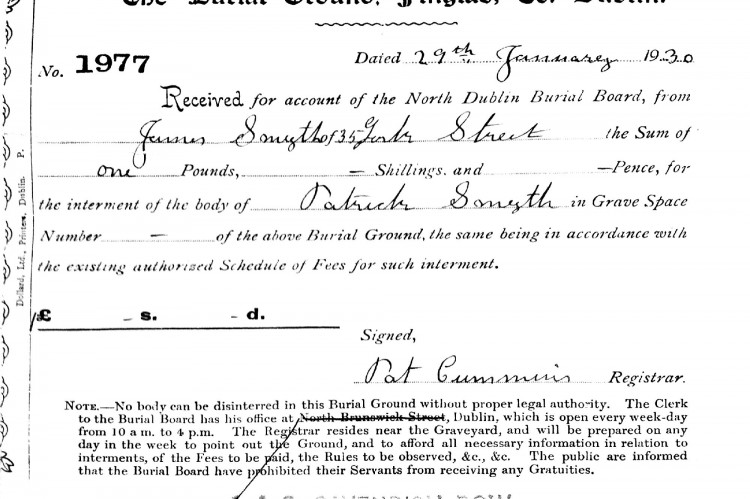 The Burial Ground, Finglas, Co. Dublin.
No. 1977 Dated 29th January 1930
Received for account of the North Dublin Burial Board, from
James Smyth of 35 York Street the Sum of
one Pounds, — Shillings, and — Pence, for
the interment of the body of Patrick Smyth in Grave Space
Number — of the above Burial Ground, the same being in accordance with
the existing authorized Schedule of Fees for such interment.
£ - s. - d.
Signed,
Pat Cummins Registrar.
NOTE.—No body can be disinterred in this Burial Ground without proper legal authority. The Clerk
to the Burial Board has his office at North Brunswick Street, Dublin, which is open every week-day
from 10 a.m. to 4 p.m. The Registrar resides near the Graveyard, and will be prepared on any
day in the week to point out the Ground, and to afford all necessary information in relation to
interments, of the Fees to be paid, the Rules to be observed, &c., &c. The public are informed
that the Burial Board have prohibited their Servants from receiving any Gratuities.
CAVENDISH ROW
Dollard, Ltd., Printers, Dublin. P.